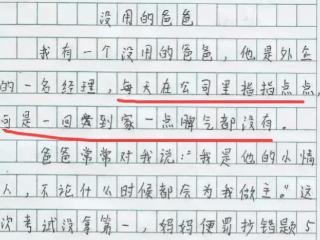 没用的爸爸
我有一个没用的爸爸,他是外企
的一名经理,每天在公司里指指点点,
可是一回到家一点脾气都没有。
爸爸常常对我说:“我是他的小情
人,不论什么时候都会为我做主。”这
次考试没拿第一,妈妈便罚抄错题5